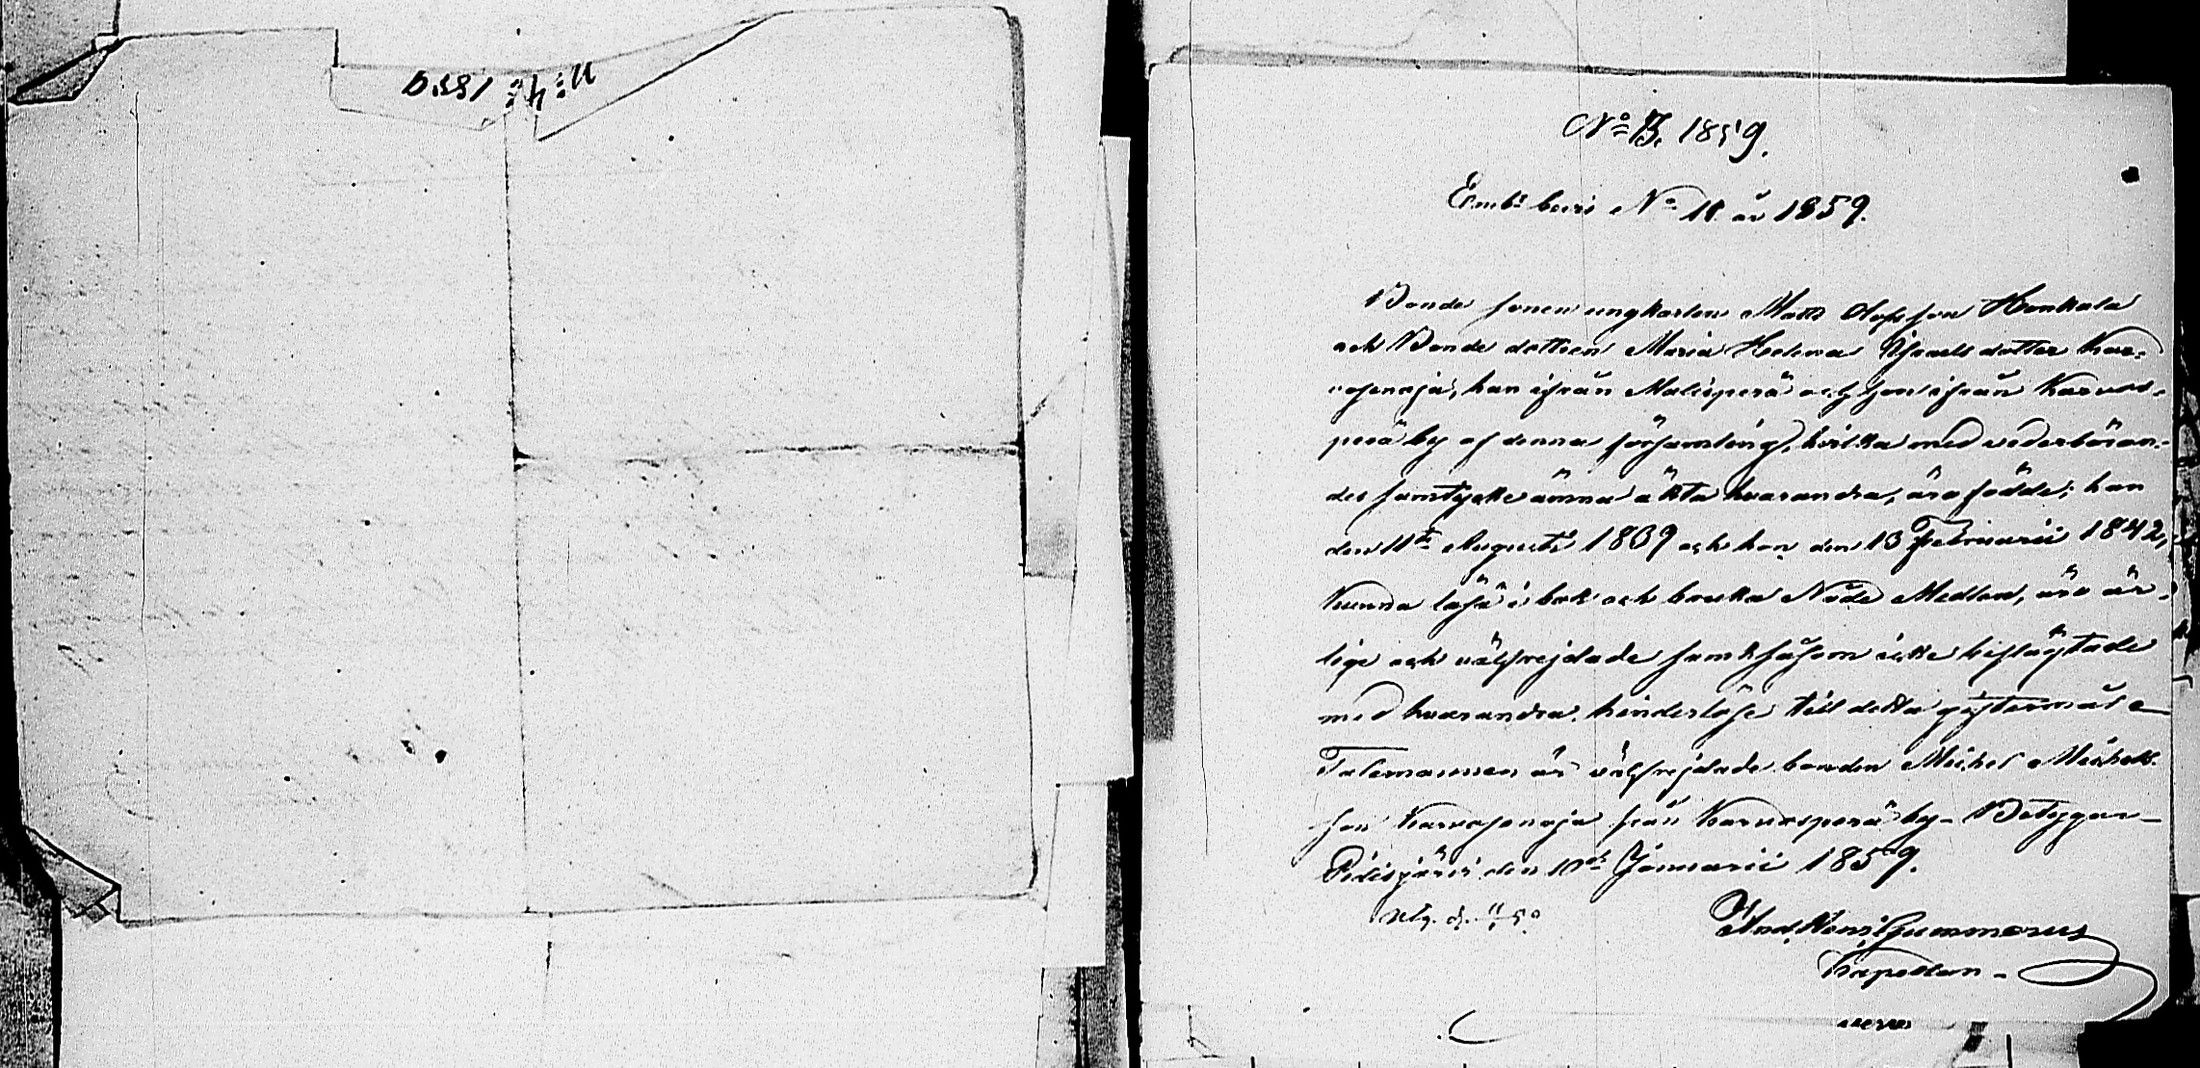 N:o 4: 1859
No 13. 1859.
Emb:s bevis No 10 år 1859.
Bonde sonen ungkarlen Matts Olofsson Honkala
och Bonde dottren Maria Helena Israels dotter Kar-
vosenoja, han ifrån Malisperä och hon ifrån Karvos-
perä by af denna församling, hvilka med vederböran-
des samtycke ämna äkta hvarandra, äro födde; han
den 11te Augusti 1839 och hon den 13 Februarii 1842,
Kunna läsa i bok och bruka Nåde Medlen, äro är-
lige och välfrejdade samt såsom icke beslägtade
med hvarandra hinderlöse till detta giftermål
Talemannen är välfrejdade bonden Michel Michels-
son Karvosenoja från Karvosperä by - Betygar -
Pidisjärvi den 10de Januarii 1859.
And. Henr. Gummerus
Kapellan -